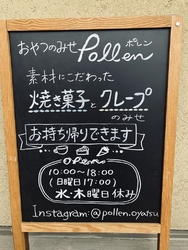 おやつのみせ
Pollen ポレン
素材にこだわった
焼き菓子とクレープ
のみせ
お持ち帰りできます
OPEN
10:00～18:00
(日曜日17:00)
水・木曜日休み
Instagram:@pollen.oyatsu